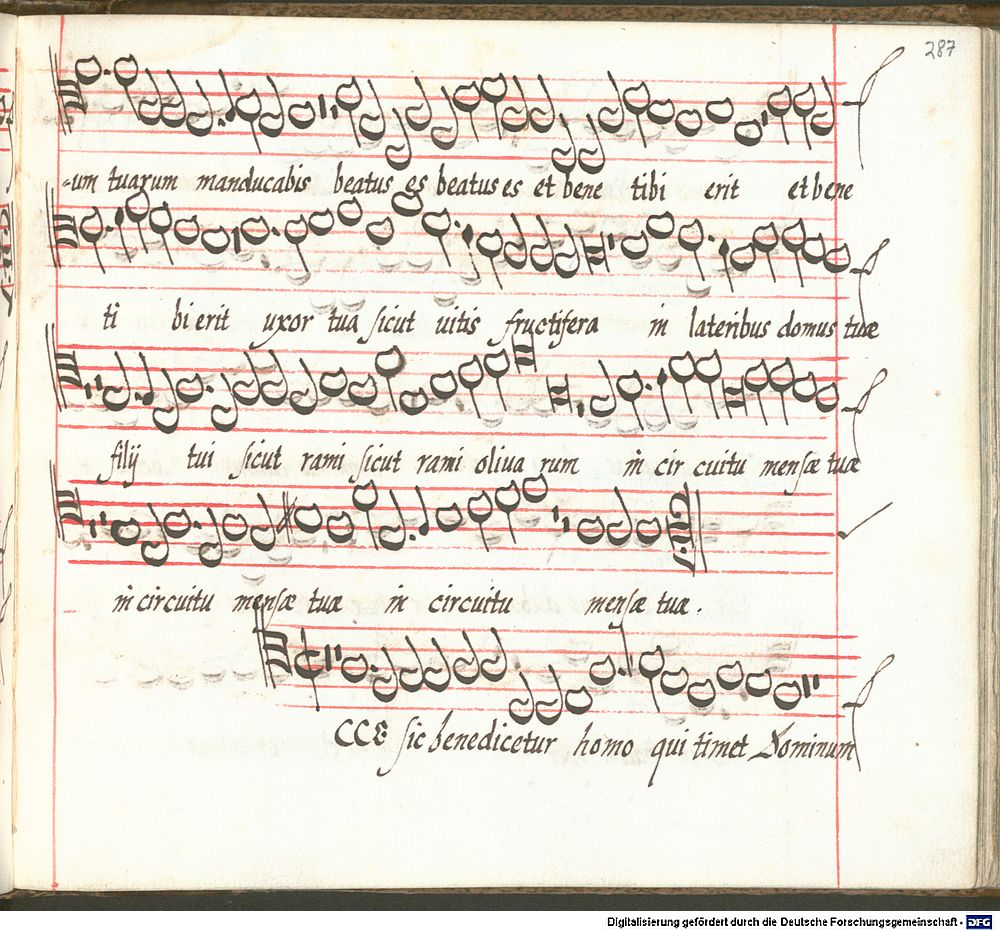 287
-um tuarum manducabis beatus es beatus es et bene tibi erit et bene
ti bi erit uxor tua sicut uitis fructifera in lateribus domus tuæ
filij tui sicut rami sicut rami oliua rum in cir cuitu mensæ tuæ
in circuitu mensæ tuæ in circuitu mensæ tuæ.
CCE sic benedicetur homo qui timet Dominum
Digitalisierung gefördert durch die Deutsche Forschungsgemeinschaft - DFG